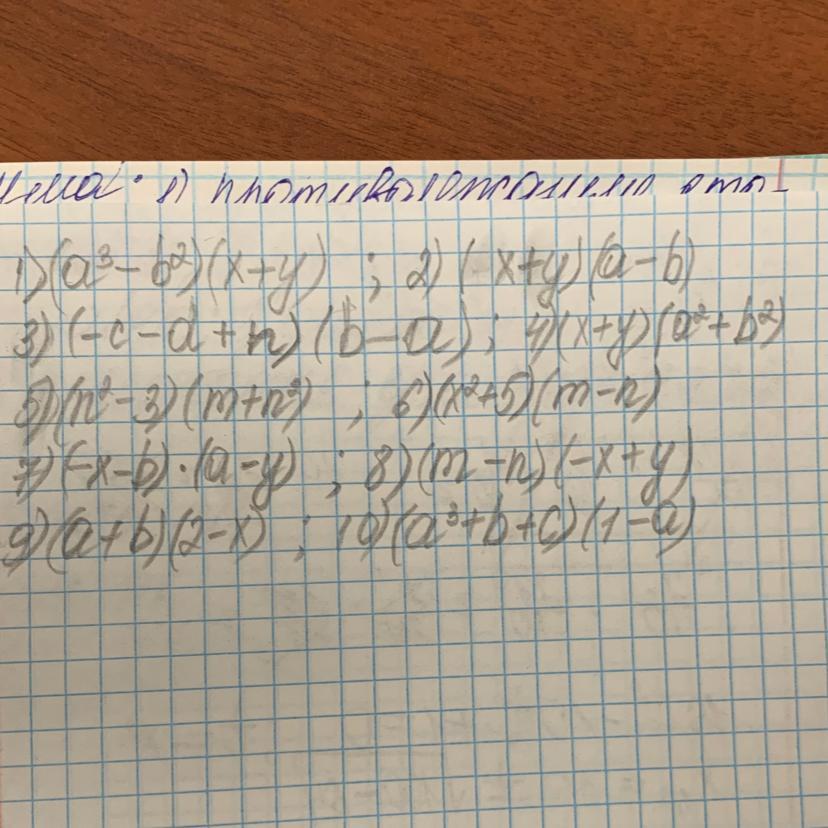 1) (a³ - b²)(x+y) ; 2) (-x+y)(a-b)
3) (-c - d + n)(b - a) ; 4) (x+y)(a² + b²)
5) (n² - 3)(m + n²) ; 6) (x² + 5)(m - n)
7) (-x - b) · (a - y) ; 8) (m - n)(-x + y)
9) (a + b)(2 - x) ; 10) (a³ + b + c)(1 - a)